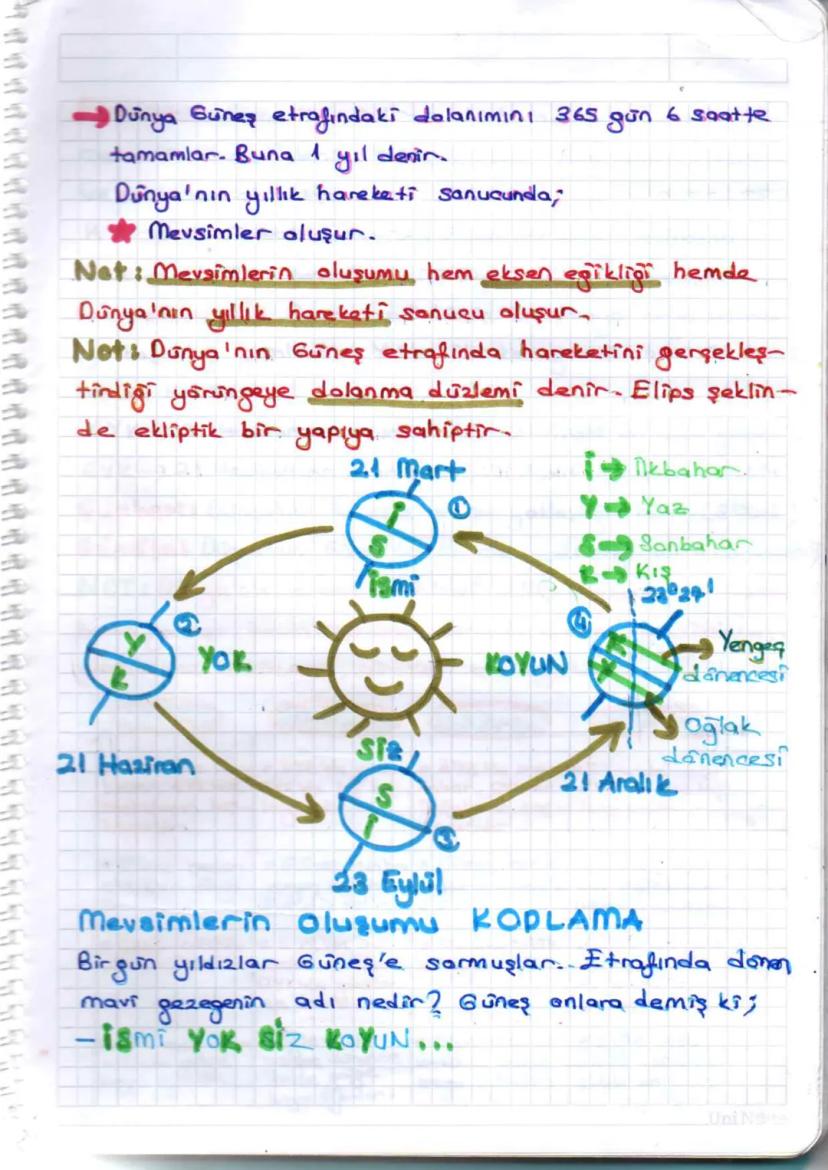 → Dünya Güneş etrafındaki dolanımını 365 gün 6 saatte
tamamlar. Buna 1 yıl denir.
Dünya'nın yıllık hareketi sonucunda;
★ Mevsimler oluşur.
Not: Mevsimlerin oluşumu hem eksen eğikliği hemde
Dünya'nın yıllık hareketi sonucu oluşur.
Not: Dünya'nın Güneş etrafında hareketini gerçekleş-
tirdiği yörüngeye dolanma düzlemi denir. Elips şeklin-
de ekliptik bir yapıya sahiptir.
21 Mart
İ → İlkbahar
Y → Yaz
S → Sonbahar
K → Kış
İ
S
①
İSmi
23°27'
Y
K
②
YOK
KOYUN
④
K
Y
Yengeç
dönencesi
Oğlak
dönencesi
21 Haziran
SİZ
21 Aralık
S
İ
③
23 Eylül
Mevsimlerin Oluşumu KODLAMA
Bir gün yıldızlar Güneş'e sormuşlar.. Etrafında dönen
mavi gezegenin adı nedir? Güneş onlara demiş ki;
- İSmi YOK SİZ KOYUN...
UniN